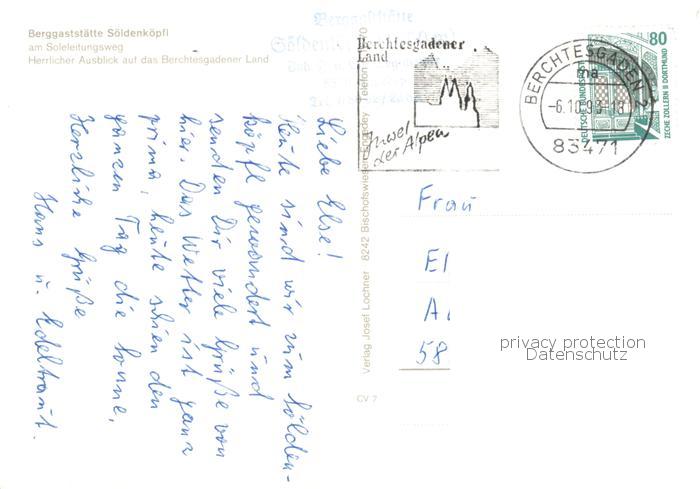 Berggaststätte Söldenköpfl
am Soleleitungsweg
Herrlicher Ausblick auf das Berchtesgadener Land
Berggaststätte
Liebe Else!
Heute sind wir zum Sölden-
köpfl gewandert und
senden Dir viele Grüße von
hier. Das Wetter ist ganz
prima, heute schien den
ganzen Tag die Sonne.
Herzliche Grüße
Hans u. Edeltraut.
Verlag Josef Lochner 8242 Bischofswiesen
CV 7
Berchtesgadener
Land
Insel
der Alpen
BERCHTESGADEN 2
ma
-6.10.93-18
83471
80
DEUTSCHE BUNDESPOST
ZECHE ZOLLERN II DORTMUND
Frau
El
A
58
privacy protection
Datenschutz